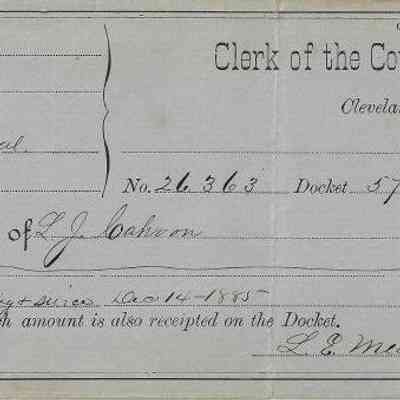 Clerk of the Cou
Clevelan
al.
No. 26363 Docket 57
of L J. Cahoon
Dec 14-1885
h amount is also receipted on the Docket.
L. E.